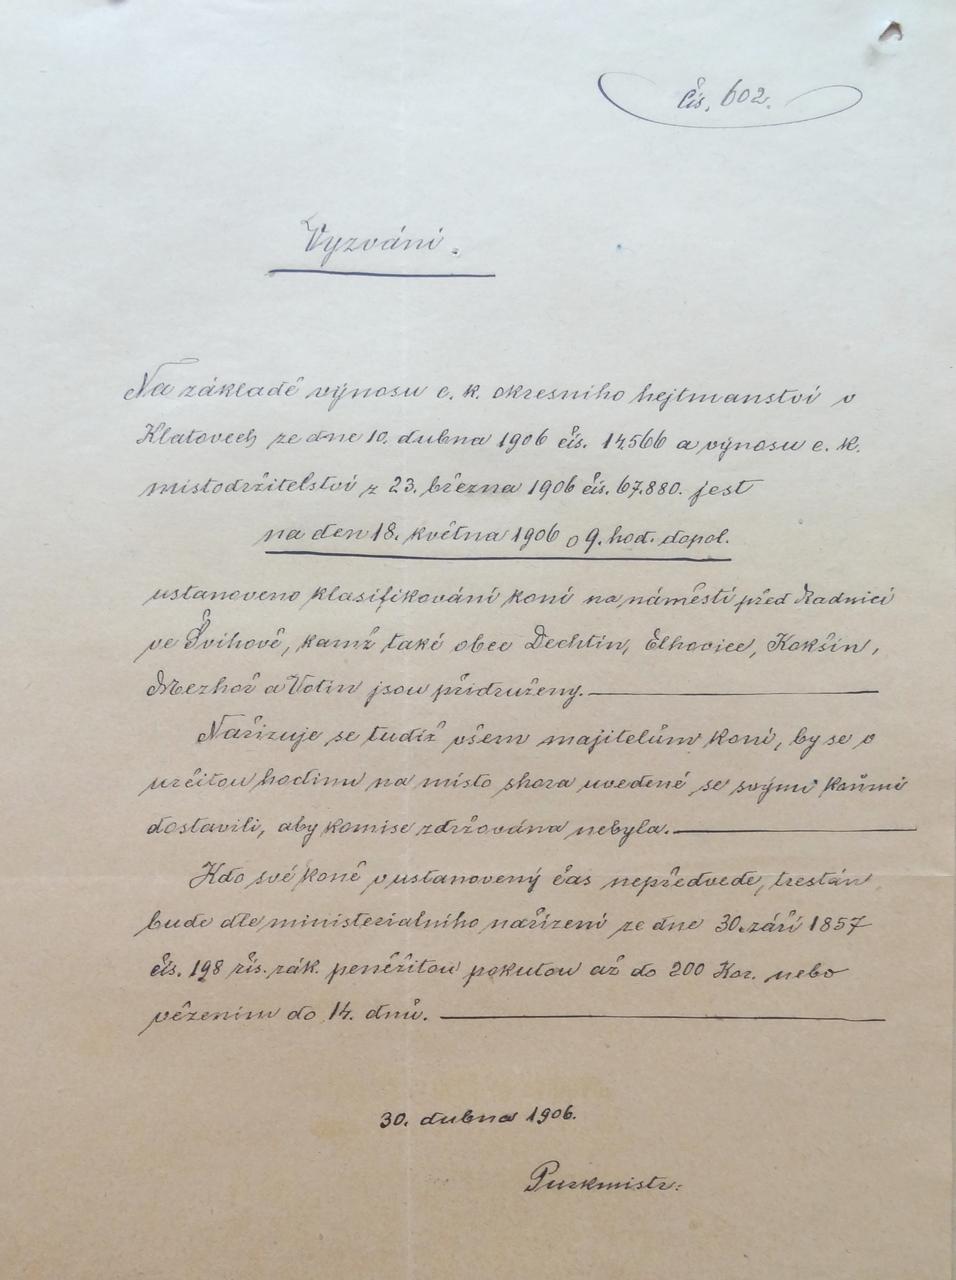 čís. 602.
Vyzvání.
Na základě výnosu c. k. okresního hejtmanství v
Klatovech ze dne 10. dubna 1906 čís. 14566 a výnosu c. k.
místodržitelství z 23. března 1906 čís. 67.880. jest
na den 18. května 1906 o 9. hod. dopol.
ustanoveno klasifikování koní na náměstí před Radnicí
ve Švihově, kamž také obce Dechtín, Elhovice, Kokšín,
Mezhoř a Votín jsou přidruženy.
Nařizuje se tudíž všem majitelům koní, by se v
určitou hodinu na místo shora uvedené se svými koňmi
dostavili, aby komise zdržována nebyla.
Kdo své koně v ustanovený čas nepředvede, trestán
bude dle ministerialního nařízení ze dne 30. září 1857
čís. 198 řís. zák. peněžitou pokutou až do 200 Kor. nebo
vězením do 14. dnů.
30. dubna 1906.
Purkmistr: